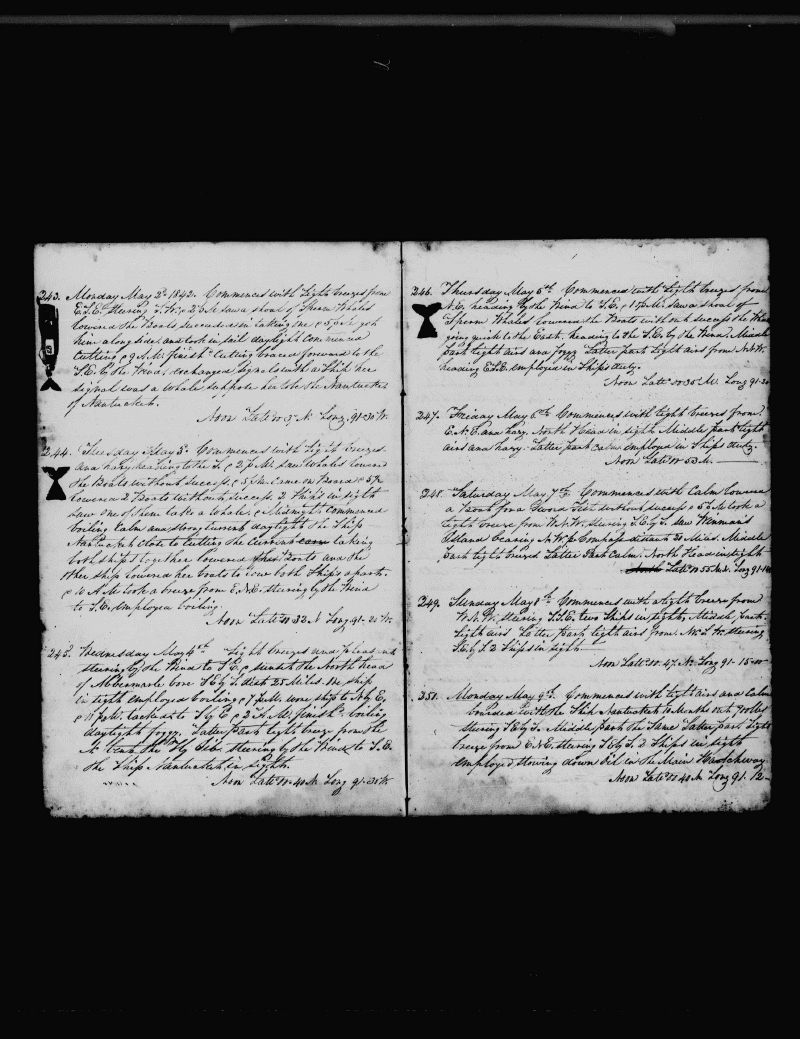 243. Monday May 2d 1842. Commences with light breezes from
E.S.E. steering S.W. @ 2 P.M. saw a shoal of Sperm Whales
lowered the Boats succeeded in taking one @ 5 P.M. got
him along side and took in sail daylight commenced
cutting @ 9 A.M. finishd cutting braced forward to the
S.E. by the Wind, exchanged signals with a Ship her
signal was a Whale suppose her to be the Nantucket
of Nantucket.
Noon Latd 00 37 N Long 91-30 W.
244. Tuesday May 3d Commences with light breezes
and hazy heading to the S. @ 2 P.M. saw Whales lowered
the Boats without success, @ 5 P.M. came on Board @ 5 1/2
lowered 2 Boats without success. 2 Ships in sight
saw one of them take a Whale, @ Midnight commenced
boiling Calm and strong current daylight the Ship
Nantucket close to cutting the current taking
both ships together lowered Boats and the
other ship lowered her boats to tow both Ships apart.
@ 10 A.M. took a breeze from E.N.E. steering by the Wind
to S.E. employed boiling.
Noon Latd 00 32 N Long 91-20 W.
245. Wednesday May 4th Light breezes and pleasant
steering by the Wind to S.E. @ sundown the North head
of Albemarle bore S E by S. dist 25 Miles. One ship
in sight employed boiling @ 7 P.M. wore ship to N by E.
@ 11 P.M. tacked to S by E @ 2 A.M. finishd boiling
daylight foggy. Latter part light breeze from the
N. bent the Fly Gibb. steering by the Wind to S.E.
the Ship Nantucket in sight.
Noon Latd 00-40 N. Long 91-30 W
246. Thursday May 5th Commences with light breezes from
N.E. heading by the Wind to S.E. @ 1 P.M. saw a shoal of
Sperm Whales lowered the Boats without success the Whales
going quick to the East, heading to the S.E. by the Wind. Middle
part light airs and foggy Latter part light airs from N.N.W.
heading E.S.E. employed in Ships duty.
Noon Latd 00 30 N. Long 91-20
247. Friday May 6th Commences with light breezes from
E.N.E. and hazy. North Head in sight Middle part light
airs and hazy. Latter part calm employed in Ships duty.
Noon Latd 00 53 N.
248. Saturday May 7th Commences with Calm lowered
a Boat for a Goose Fish without success @ 5 P.M. took a
light breeze from W.N.W. steering S.E. by S. saw Wenman's
Island bearing N.W. p Compass distant 30 Miles. Middle
part light breezes Latter Part Calm. North Head in sight
Latd 00 55 N. Long 91-10
249. Sunday May 8th Commences with a light breeze from
W.N.W. steering S.S.E. two Ships in sight, Middle part
light airs Latter Part light airs from steering
S. by E 2 Ships in sight.
Noon Latd 00. 47 N. Long 91-15-00
250. Monday May 9th. Commences with light airs and Calm
boarded the Ship Nantucket 10 Months out bbls
steering S E by S. Middle part the Same Latter part light
breeze from E.N.E. steering S E by S. 2 Ships in sight
employed stowing down Oil in the Main Hatchway.
Noon Latd 00 40 N Long 91. 12